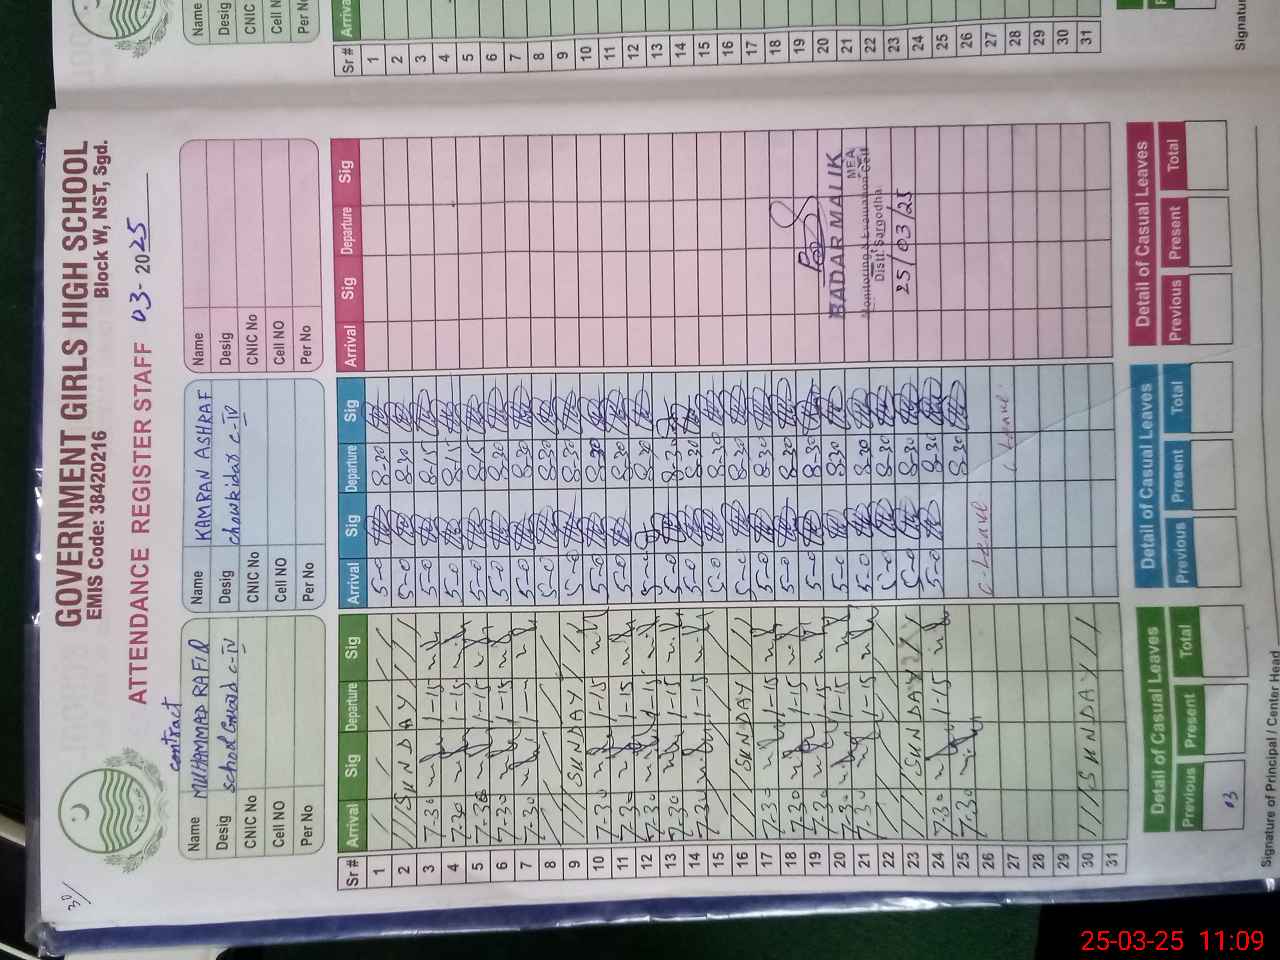 GOVERNMENT GIRLS HIGH SCHOOL
EMIS Code: 38420216 Block W, NST, Sgd.
ATTENDANCE REGISTER STAFF 03-2025
30/
contract
Name MUHAMMAD RAFIQ
Desig School Guard C-IV
CNIC No
Cell NO
Per No
Name KAMRAN ASHRAF
Desig Chowkidar C-IV
CNIC No
Cell NO
Per No
Name
Desig
CNIC No
Cell NO
Per No
Sr # Arrival Sig Departure Sig Arrival Sig Departure Sig Arrival Sig Departure Sig
1 5-0 8-30
2 SUNDAY 5-0 8-30
3 7-30 1-15 5-0 8-15
4 7-30 1-15 5-0 8-15
5 7-30 1-15 5-0 8-15
6 7-30 1-15 5-0 8-30
7 7-30 5-0 8-30
8 5-0 8-30
9 SUNDAY 5-0 8-30
10 7-30 1-15 5-0 8-30
11 7-30 1-15 5-0 8-30
12 7-30 1-15 8-30
13 7-30 1-15 5-0 8-30
14 7-30 1-15 5-0 8-30
15 5-0 8-30
16 SUNDAY 8-30
17 7-30 1-15 5-0 8-30
18 7-30 1-15 5-0 8-30
19 7-30 1-15 5-0 8-30
20 7-30 1-15 5-0 8-30
21 7-30 1-15 5-0 8-30
22 5-0 8-30
23 SUNDAY 5-0 8-30
24 7-30 1-15 5-0 8-30
25 7-30 8-30
26 C-Leave
27 Leave
28
29
30 SUNDAY
31
BADAR MALIK
MEA
Monitoring & Evaluation Cell
Distt Sargodha
25/03/25
Detail of Casual Leaves
Previous Present Total
03
Detail of Casual Leaves
Previous Present Total
Detail of Casual Leaves
Previous Present Total
Signature of Principal / Center Head
Name
Desig
CNIC
Cell N
Per No
Sr # Arriva
1
2
3
4
5
6
7
8
9
10
11
12
13
14
15
16
17
18
19
20
21
22
23
24
25
26
27
28
29
30
31
Signature
25-03-25 11:09